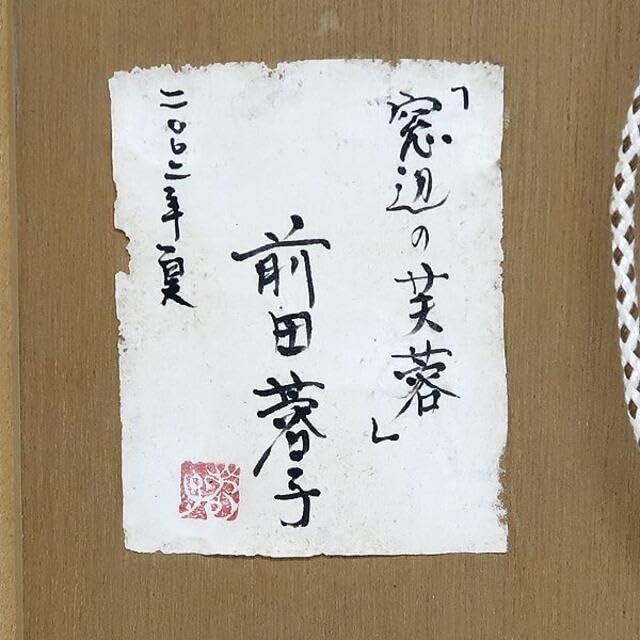 「窓辺の芙蓉」
前田蓉子
二〇〇二年夏